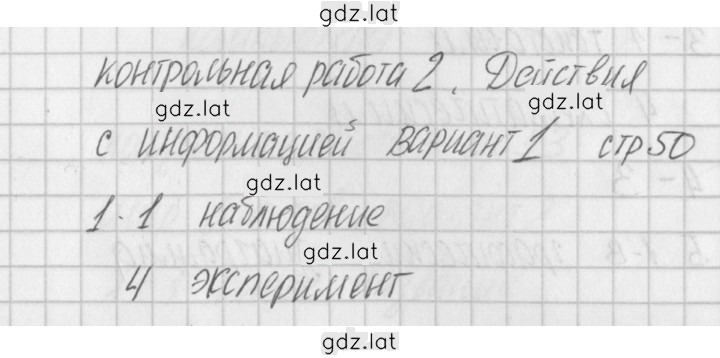 gdz.lat
контрольная работа 2. Действия
gdz.lat gdz.lat
с информацией вариант 1 стр 50
gdz.lat
1. 1 наблюдение
gdz.lat
4 эксперимент
gdz.lat
gdz.lat